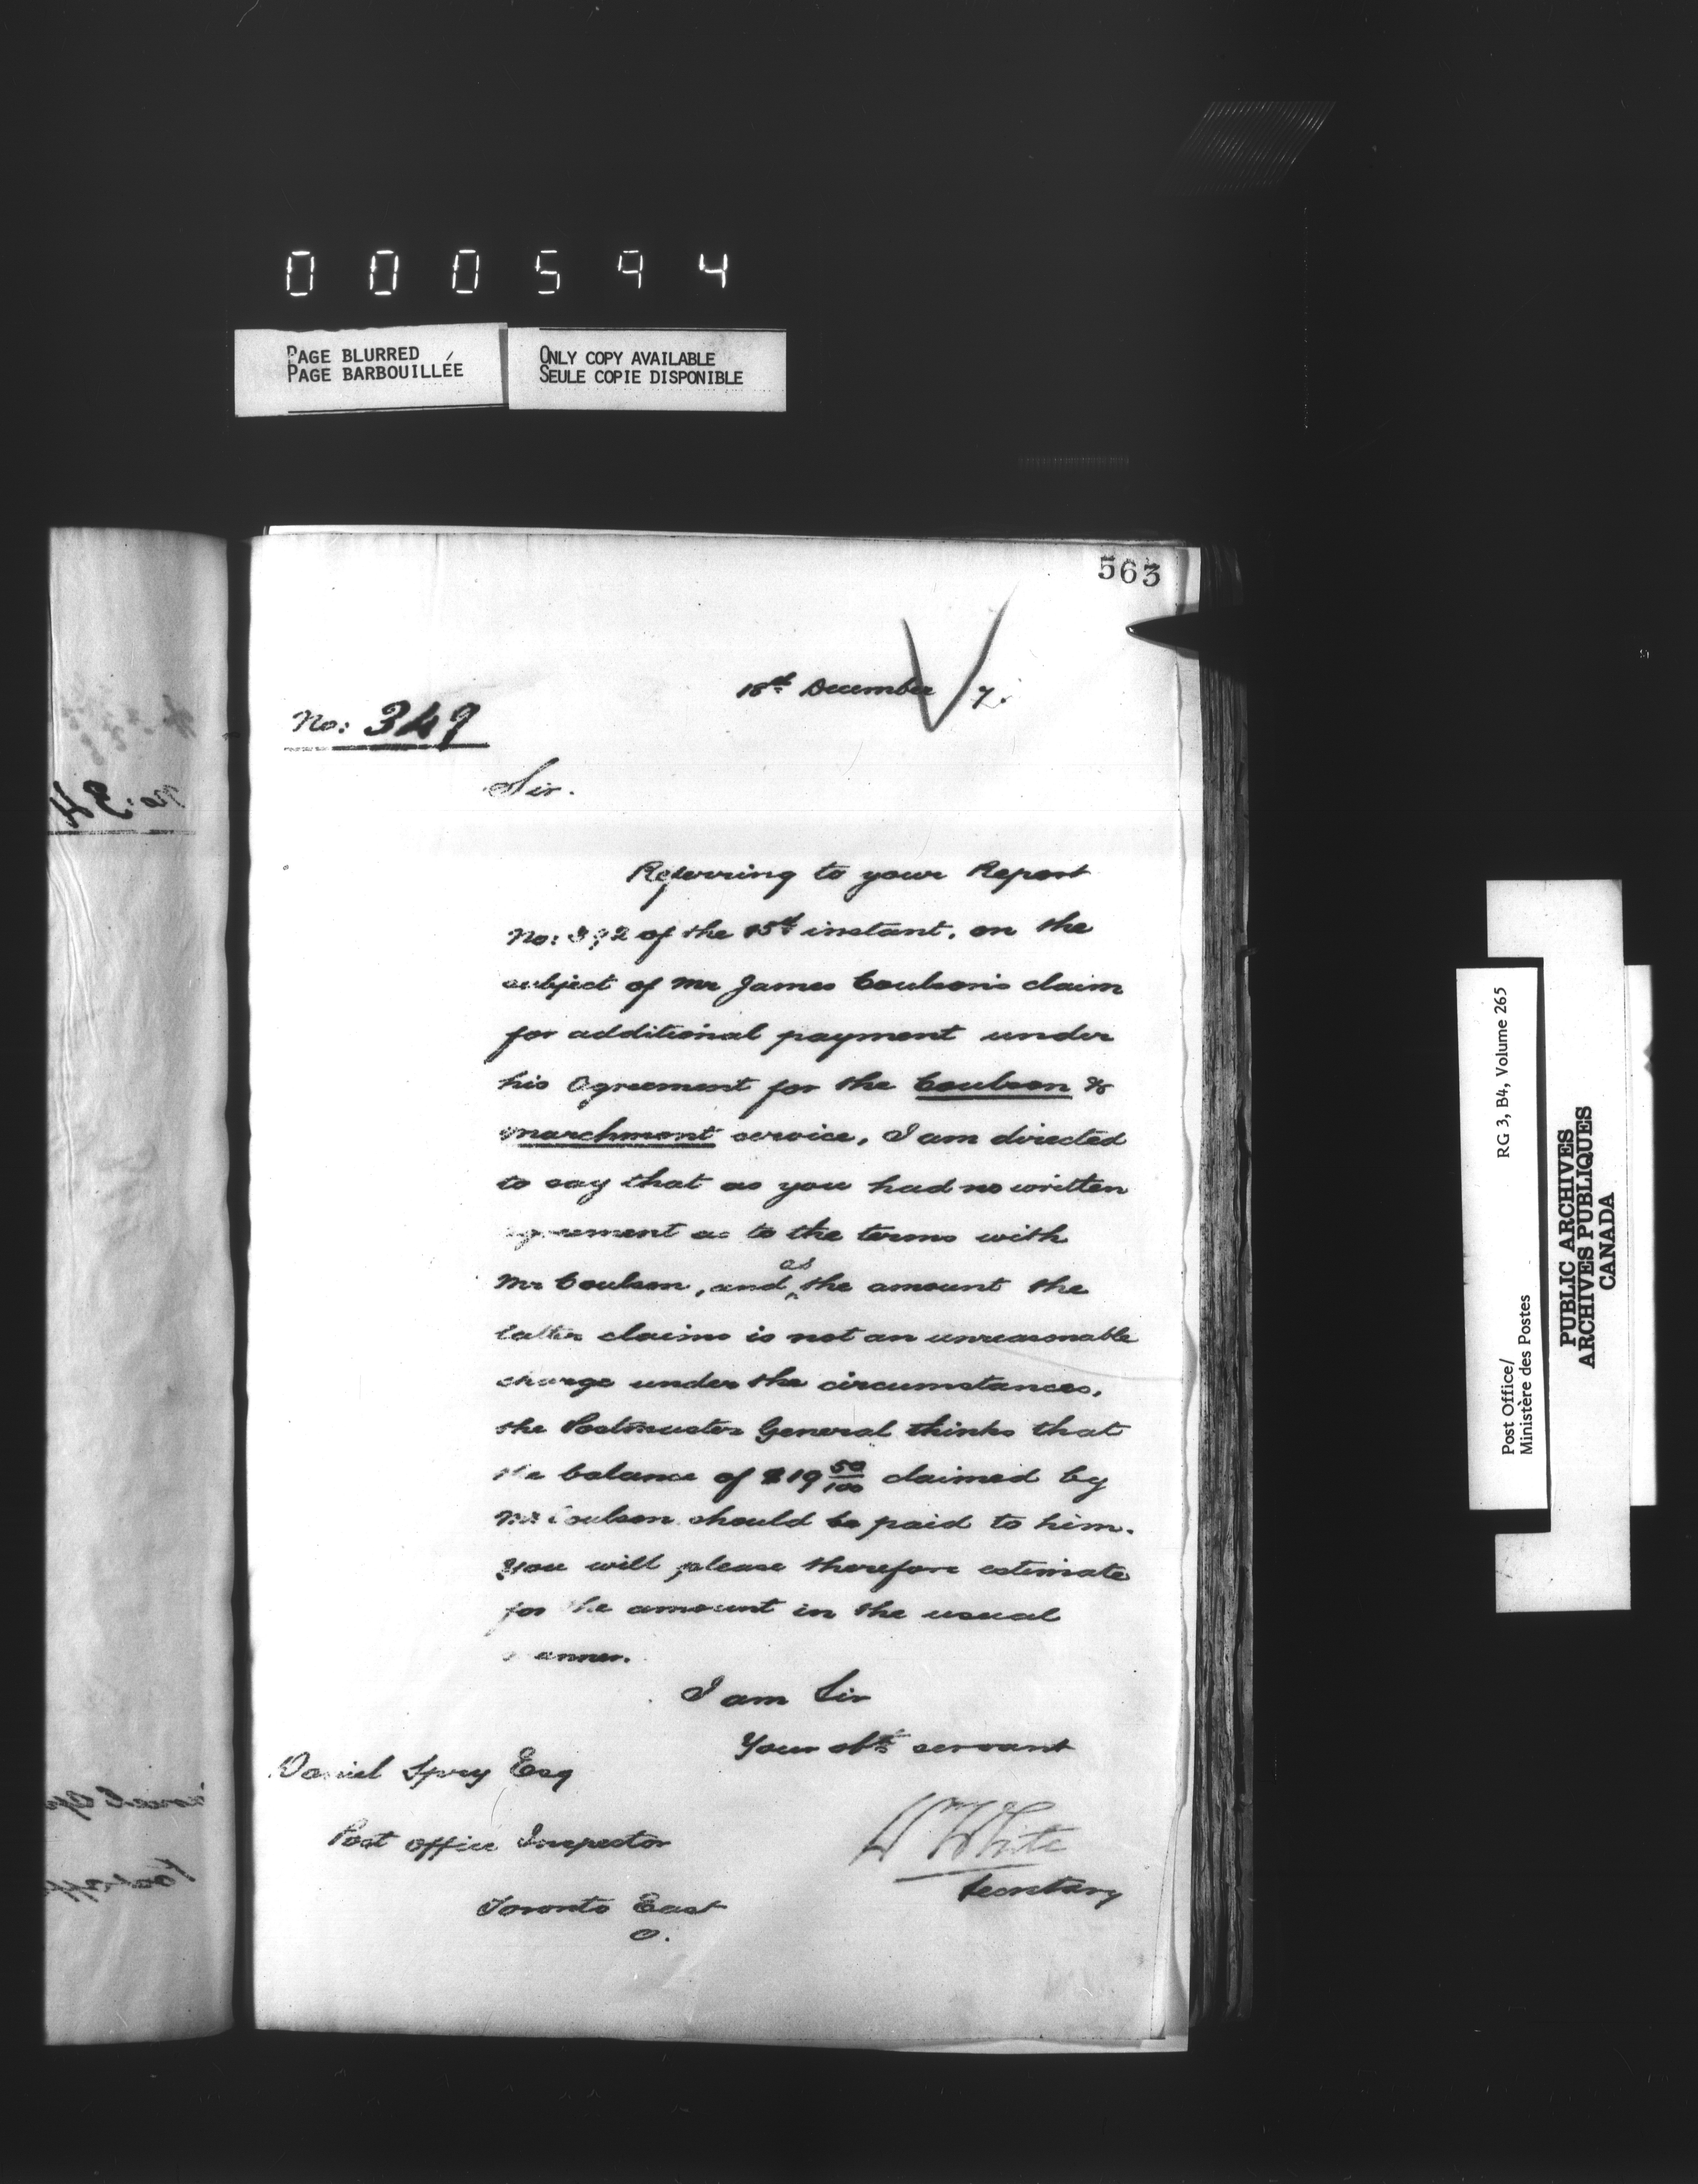 000594
PAGE BLURRED
PAGE BARBOUILLÉE
ONLY COPY AVAILABLE
SEULE COPIE DISPONIBLE
563
18th December /7.
No: 349
Sir.
Referring to your Report
No: of the 15th instant, on the
subject of Mr James Coulson's claim
for additional payment under
his Agreement for the Coulson &
Marchmont service, I am directed
to say that as you had no written
agreement as to the terms with
Mr Coulson, and as the amount the
latter claims is not an unreasonable
charge under the circumstances,
the Postmaster General thinks that
the balance of $19 50/100 claimed by
Mr Coulson should be paid to him.
You will please therefore estimate
for the amount in the usual
manner.
I am Sir
Your obt servant
W White
Secretary
Daniel Spry Esq
Post Office Inspector
Toronto East
O.
Post Office/
Ministère des Postes
RG 3, B4, Volume 265
PUBLIC ARCHIVES
ARCHIVES PUBLIQUES
CANADA